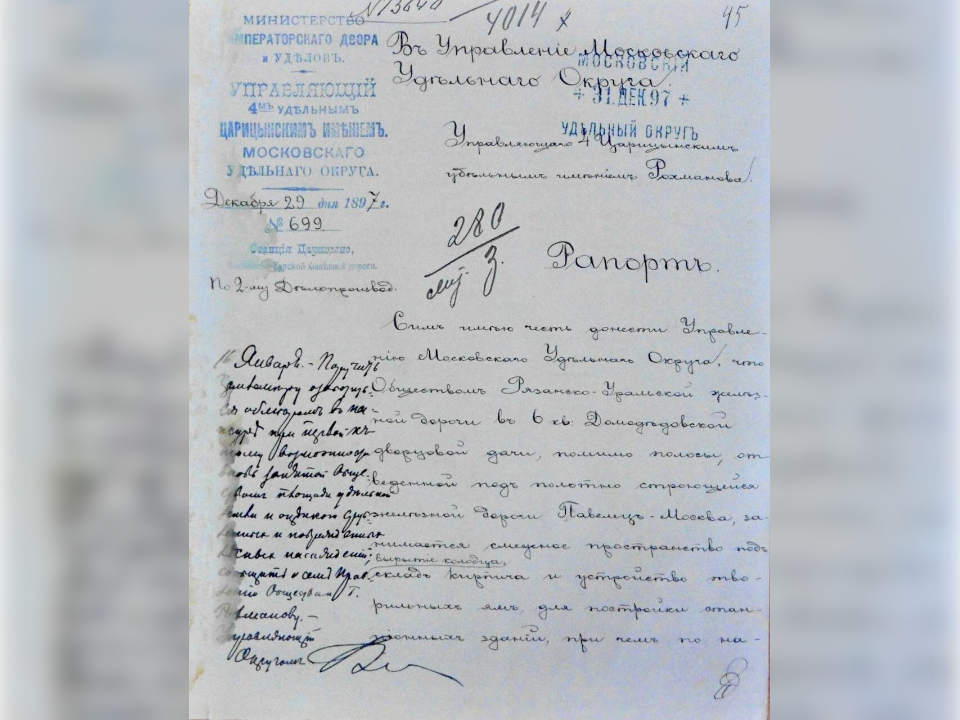 №13640
4014 х
45
МИНИСТЕРСТВО
ИМПЕРАТОРСКАГО ДВОРА
и УДѢЛОВЪ.
УПРАВЛЯЮЩІЙ
4мъ УДѢЛЬНЫМЪ
ЦАРИЦЫНСКИМЪ ИМѢНІЕМЪ.
МОСКОВСКАГО
УДѢЛЬНАГО ОКРУГА.
Декабря 29 дня 1897 г.
№ 699
Станція Царицыно,
Московско-Курской желѣзной дороги.
По 2-му Дѣлопроизвод.
Въ Управленіе Московскаго
Удѣльнаго Округа
МОСКОВСКІЙ
31 ДЕК 97
УДѢЛЬНЫЙ ОКРУГЪ
Управляющаго 4 Царицынскимъ
удѣльнымъ имѣніемъ Рохманова
280
3.
Рапортъ.
Симъ имѣю честь донести Управле-
нію Московскаго Удѣльнаго Округа, что
Обществомъ Рязанско-Уральской желѣз-
ной дороги въ 6 кв. Домодѣдовской
дворцовой дачи, помимо полосы, от
веденной подъ полотно строющейся
желѣзной дороги Павелецъ-Москва, за-
нимается смежное пространство подъ
вырытіе колодца,
складъ кирпича и устройство тво-
рильныхъ ямъ, для постройки стан-
ціонныхъ зданій, при чемъ по на-
16 Январь. - Поручить
при первой къ
тому возможности
площади удѣльной
насажденій;
Обществу и Г.
Рохманову. -
Управляющій
Округомъ